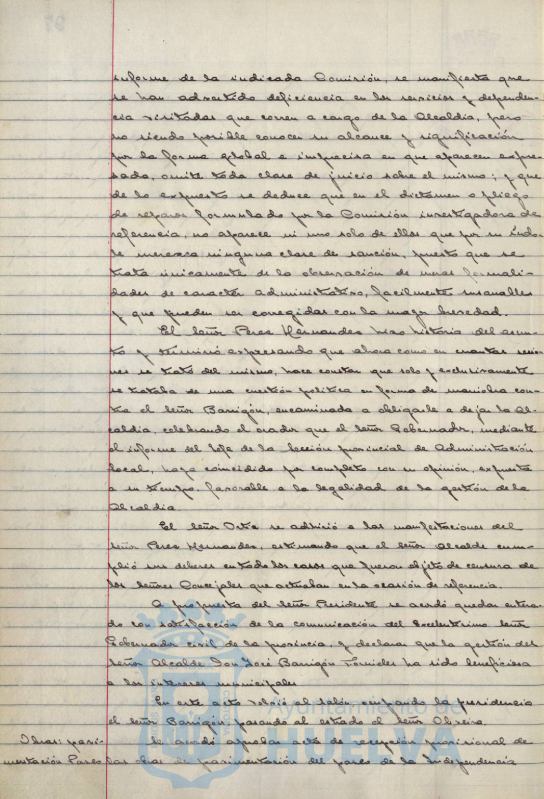 informe de la indicada Comisión, se manifiesta que
se han advertido deficiencia en los servicios y dependen-
cia visitadas que corren a cargo de la Alcaldía, pero
no siendo posible conocer su alcance y significación
por la forma global e imprecisa en que aparecen expre-
sada, omite toda clase de juicio sobre el mismo; y que
de lo expuesto se deduce que en el dictamen o pliego
de reparos formulado por la Comisión investigadora de
referencia, no aparece ni uno solo de ellos que por su índo-
le merezca ninguna clase de sanción, puesto que se
trata únicamente de la observación de unas formali-
dades de caracter administrativo, facilmente subsanables
y que pueden ser corregidas con la mayor brevedad.
El Señor Perez Hernandez hizo historia del asun-
to y terminó expresando que ahora como en cuantas sesio-
nes se trató del mismo, hace constar que solo y exclusivamente
se trataba de una cuestión política en forma de maniobra con-
tra el Señor Barrigón, encaminada a obligarle a dejar la Al-
caldía, celebrando el orador que el Señor Gobernador, mediante
el informe del Jefe de la Sección provincial de Administración
local, haya coincidido por completo con su opinión, expuesta
a su tiempo, favorable a la legalidad de la gestión de la
Alcaldia
El Señor Ortiz se adhirió a las manifestaciones del
Señor Perez Hernandez, estimando que el Señor Alcalde cum-
plió sus deberes en todo los casos que fueron objeto de censura de
los Señores Concejales que actuaban en la ocasión de referencia.
A propuesta del Señor Presidente se acordó quedar entera-
do con satisfacción de la comunicación del Excelentísimo Señor
Gobernador civil de la provincia, y declarar que la gestión del
Señor Alcalde Don José Barrigón Fornieles ha sido beneficiosa
a los intereses municipales
En este acto volvió al salón ocupando la presidencia
el Señor Barrigón, pasando al estrado el Señor Oliveira.
Obras: pavi- Se acordó aprobar acta de recepción provisional de
mentación Paseo las obras de pavimentación del paseo de la Independencia
Ayuntamiento de
HUELVA